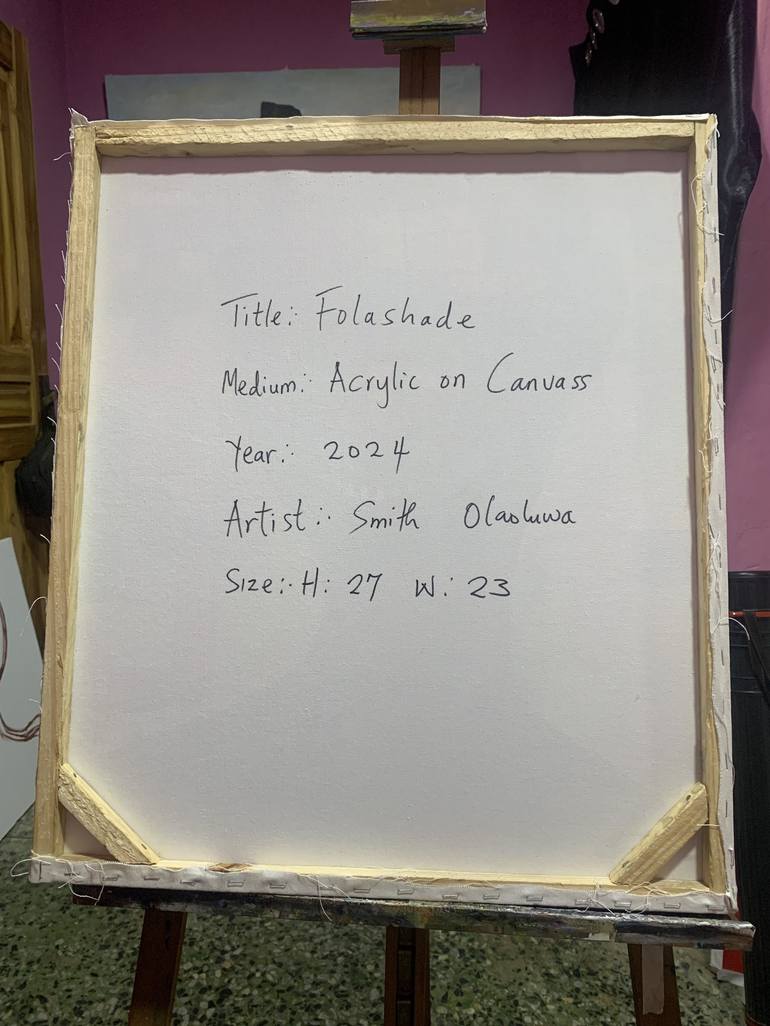 Title: Folashade
Medium: Acrylic on Canvass
Year: 2024
Artist: Smith Olaoluwa
Size: H: 27 W: 23